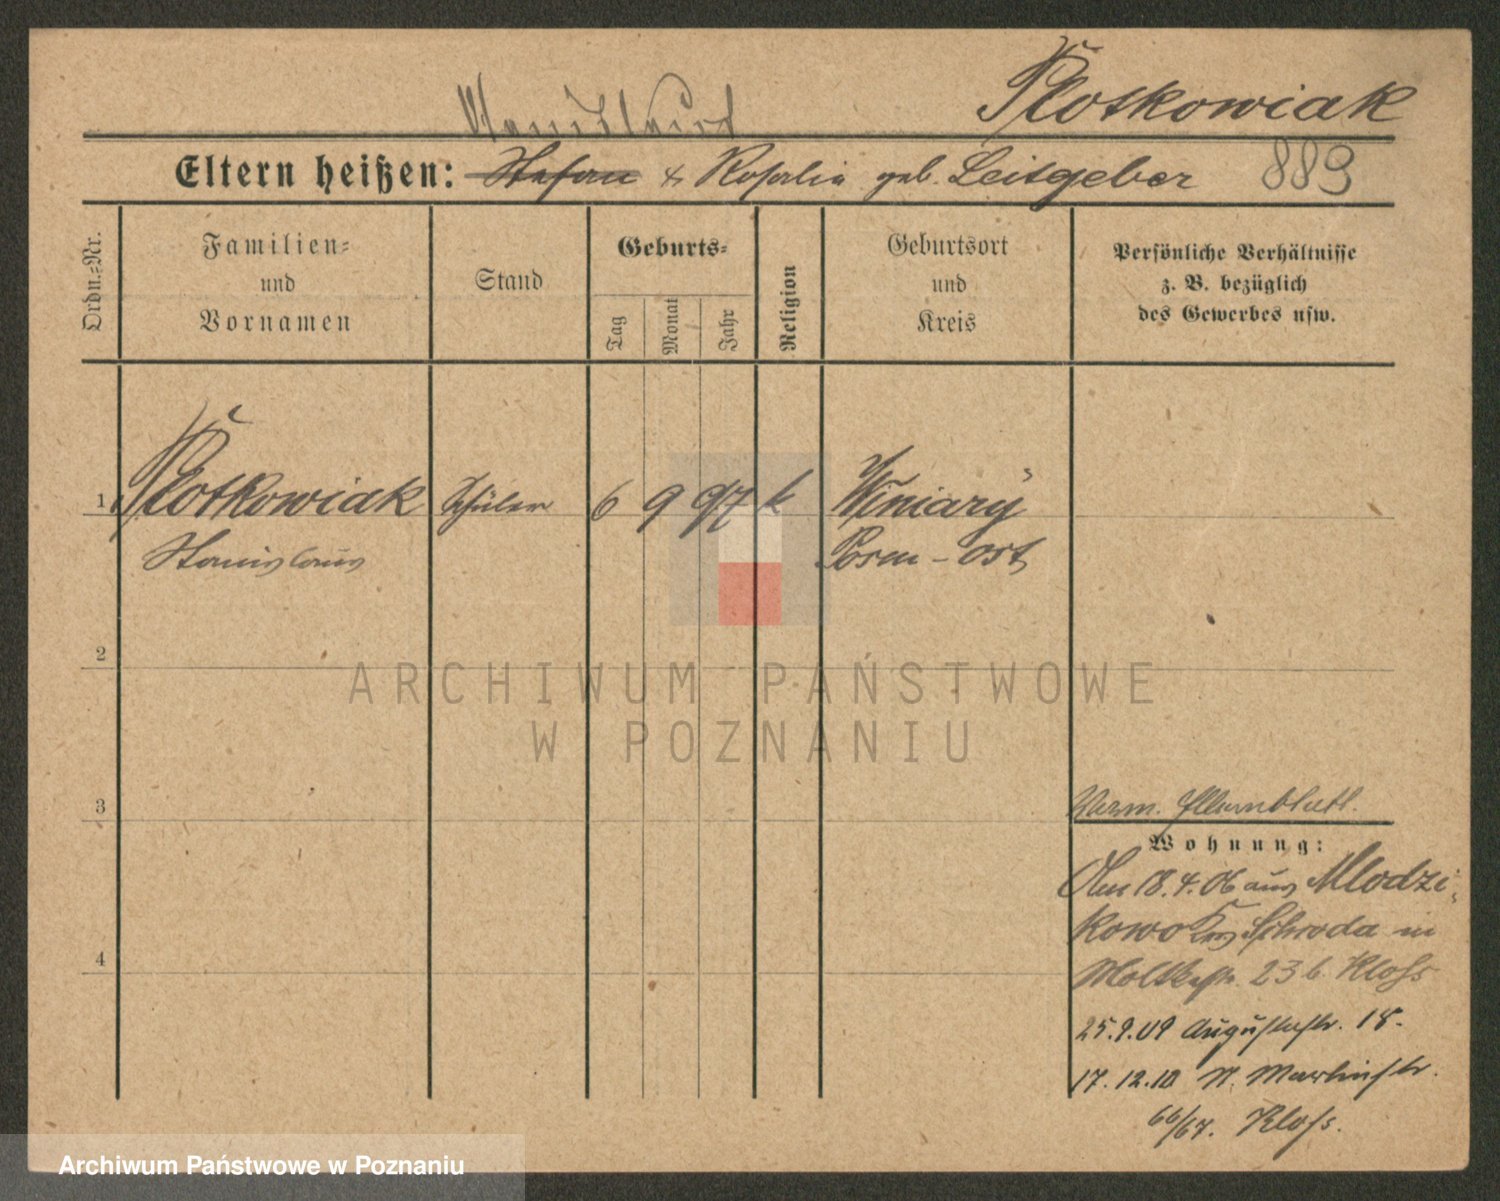 Płotkowiak
Eltern heißen: Stefan & Rosalie geb. Leitgeber 889
Ordn.=Nr.
Familien=
und
Vornamen
Stand
Geburts=
Tag
Monat
Jahr
Religion
Geburtsort
und
Kreis
Persönliche Verhältnisse
z. B. bezüglich
des Gewerbes usw.
1 Płotkowiak Schüler 6 9 97 k Winiary
Stanislaus Posen-Ost
2
ARCHIWUM PAŃSTWOWE
W POZNANIU
3
Verm. Elternblatt.
Wohnung:
Am 18.4.06 aus Mlodzi-
kowo Krs Schroda in
4
Moltkestr. 23 b. Kloss
25.9.09 Augustastr. 18.
17.12.10 St. Martinstr.
66/67. Kloss.
Archiwum Państwowe w Poznaniu